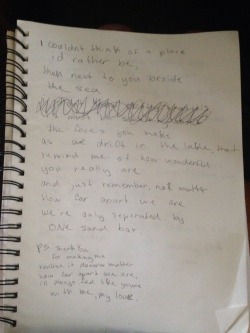 I couldnt think of a place
id rather be,
than next to you beside
the sea
the faces you make
as we drift in the lake, that
remind me of how wonderful
you really are
and just remember, not matter
how far apart we are
we're only seperated by
ONE sand bar
PS thanks
for making me
realize it doesnt matter
how far apart we are,
it always feel like youre
with me, my love.